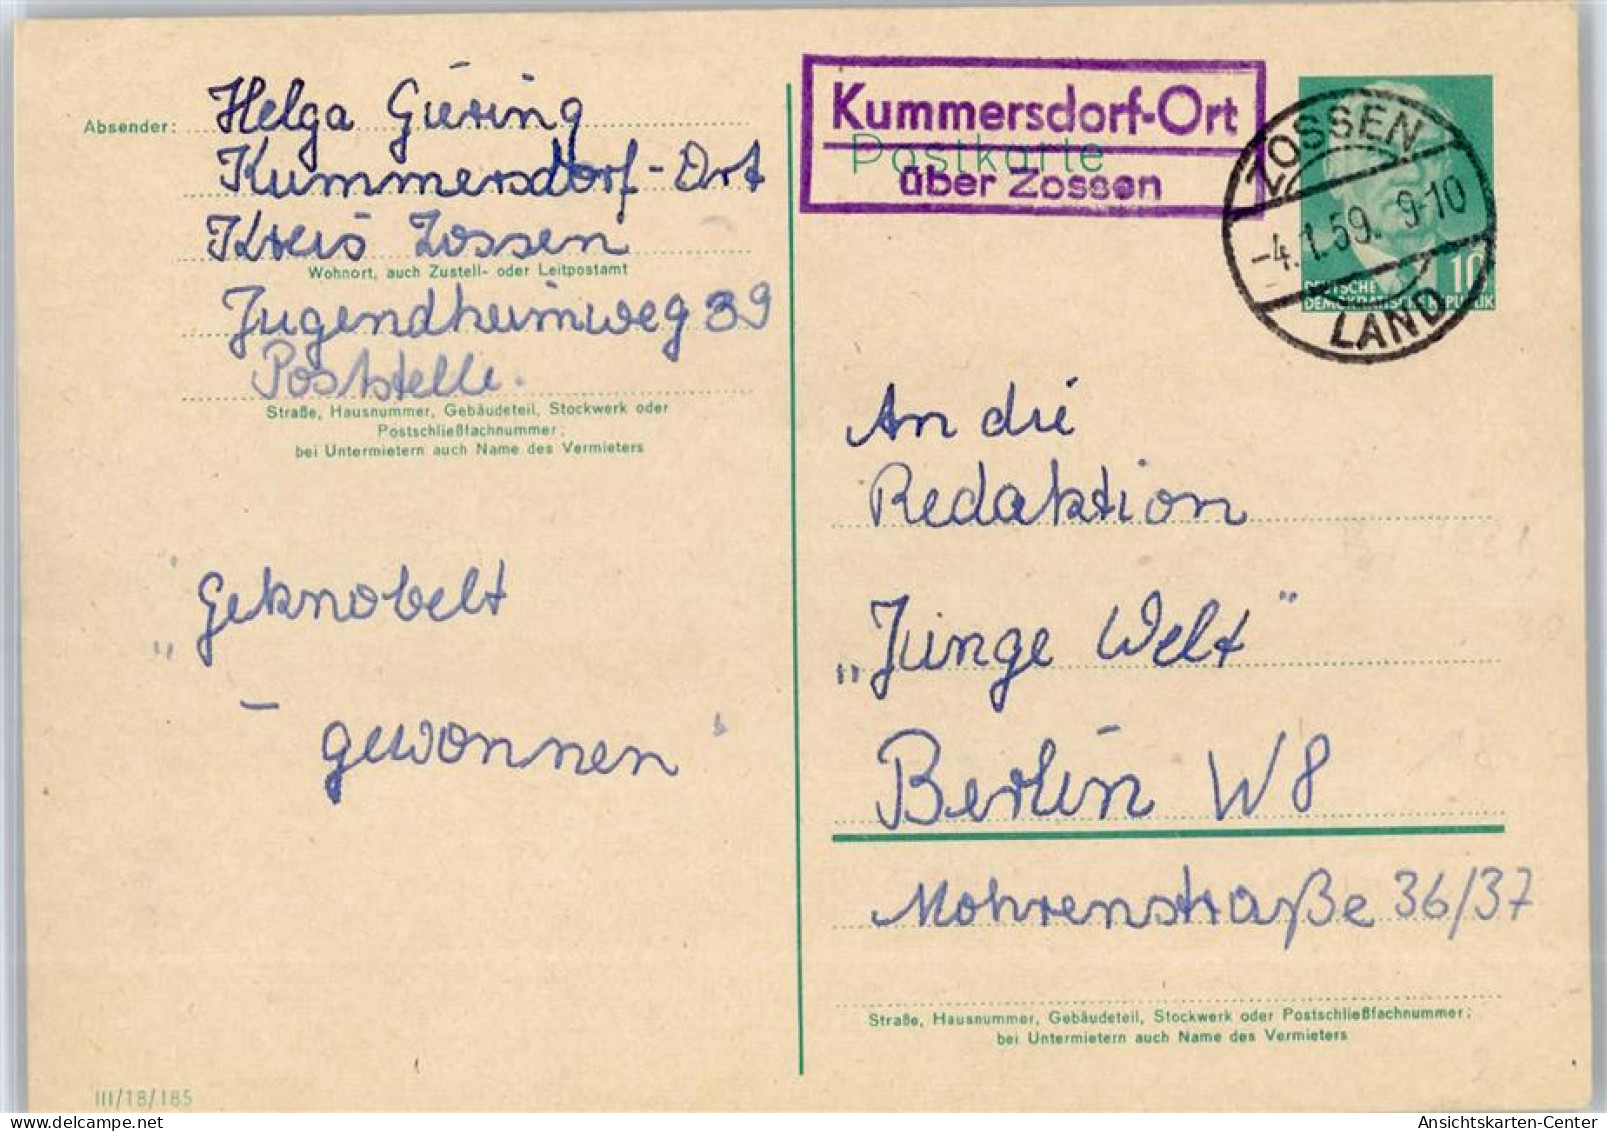 Absender: Helga Giering
Kummersdorf-Ort
Kreis Zossen
Wohnort, auch Zustell- oder Leitpostamt
Jugendheimweg 39
Poststelle.
Straße, Hausnummer, Gebäudeteil, Stockwerk oder
Postschließfachnummer;
bei Untermietern auch Name des Vermieters
„Geknobelt
– gewonnen“
III/18/185
Kummersdorf-Ort
Postkarte
über Zossen
ZOSSEN
-4.1.59. 9-10
LAND
10
DEUTSCHE
DEMOKRATISCHE REPUBLIK
An die
Redaktion
„Junge Welt“
Berlin W8
Mohrenstraße 36/37
Straße, Hausnummer, Gebäudeteil, Stockwerk oder Postschließfachnummer;
bei Untermietern auch Name des Vermieters
Ansichtskarten-Center